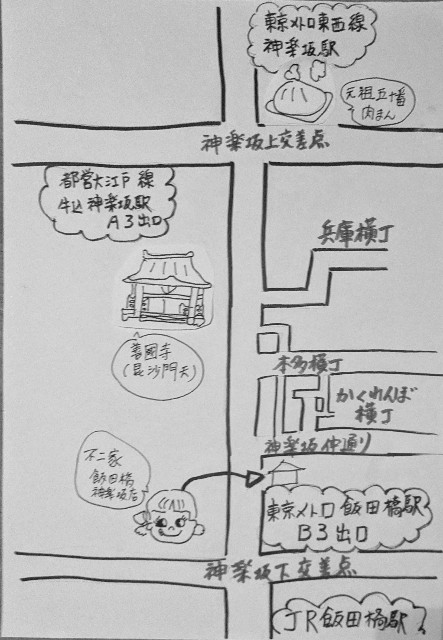 東京メトロ東西線
神楽坂駅
元祖五十番
肉まん
神楽坂上交差点
都営大江戸線
牛込神楽坂駅
A3出口
兵庫横丁
善國寺
(毘沙門天)
本多横丁
かくれんぼ
横丁
神楽坂仲通り
不二家
飯田橋
神楽坂店
東京メトロ飯田橋駅
B3出口
神楽坂下交差点
JR飯田橋駅